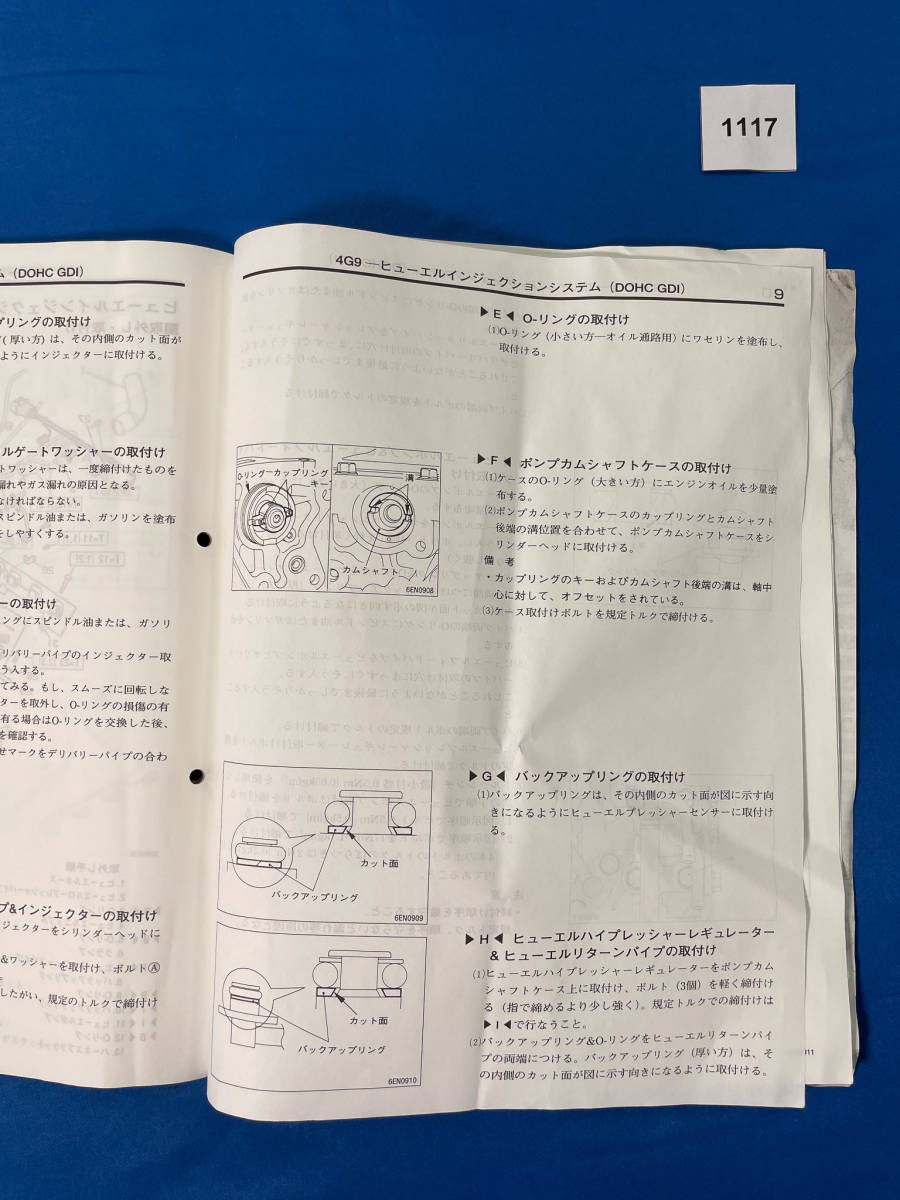 1117
ム（DOHC GDI）
プリングの取付け
（厚い方）は、その内側のカット面が
ようにインジェクターに取付ける。
ルゲートワッシャーの取付け
トワッシャーは、一度締付けたものを
漏れやガス漏れの原因となる。
なければならない。
スピンドル油または、ガソリンを塗布
をしやすくする。
ーの取付け
ングにスピンドル油または、ガソリ
リバリーパイプのインジェクター取
う入する。
てみる。もし、スムーズに回転しな
ターを取外し、O-リングの損傷の有
有る場合はO-リングを交換した後、
を確認する。
せマークをデリバリーパイプの合わ
プ&インジェクターの取付け
ジェクターをシリンダーヘッドに
&ワッシャーを取付け、ボルトⒶ
したがい、規定のトルクで締付け
4G9―ヒューエルインジェクションシステム（DOHC GDI）
9
▶E◀ O-リングの取付け
(1)O-リング（小さい方―オイル通路用）にワセリンを塗布し、
取付ける。
O-リング
カップリング
キー
溝
カムシャフト
6EN0908
▶F◀ ポンプカムシャフトケースの取付け
(1)ケースのO-リング（大きい方）にエンジンオイルを少量塗
布する。
(2)ポンプカムシャフトケースのカップリングとカムシャフト
後端の溝位置を合わせて、ポンプカムシャフトケースをシ
リンダーヘッドに取付ける。
備 考
・カップリングのキーおよびカムシャフト後端の溝は、軸中
心に対して、オフセットをされている。
(3)ケース取付けボルトを規定トルクで締付ける。
カット面
バックアップリング
6EN0909
▶G◀ バックアップリングの取付け
(1)バックアップリングは、その内側のカット面が図に示す向
きになるようにヒューエルプレッシャーセンサーに取付け
る。
カット面
バックアップリング
6EN0910
▶H◀ ヒューエルハイプレッシャーレギュレーター
& ヒューエルリターンパイプの取付け
(1)ヒューエルハイプレッシャーレギュレーターをポンプカム
シャフトケース上に取付け、ボルト（3個）を軽く締付け
る（指で締めるより少し強く）。規定トルクでの締付けは
▶I◀で行なうこと。
(2)バックアップリング&O-リングをヒューエルリターンパイ
プの両端につける。バックアップリング（厚い方）は、そ
の内側のカット面が図に示す向きになるように取付ける。